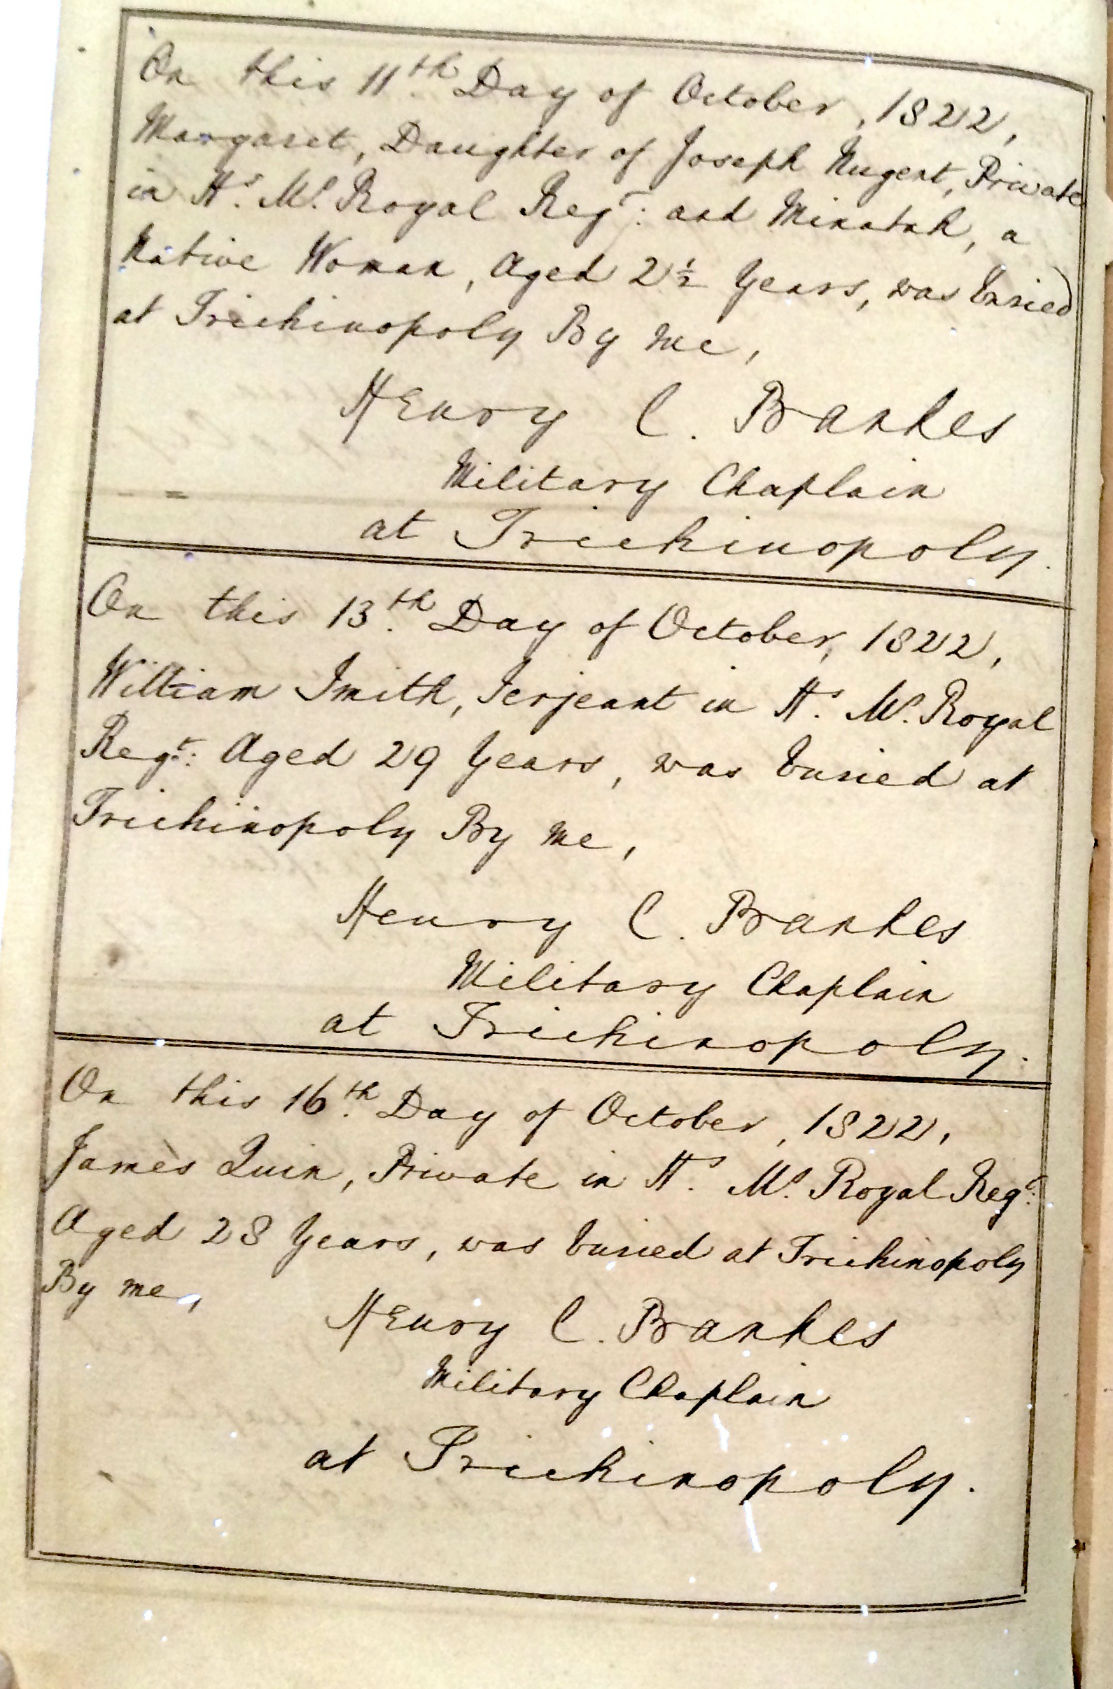 On this 11th Day of October, 1822,
Margaret, Daughter of Joseph Nugent, Private
in H.s M.s Royal Regt: and Minatah, a
Native Woman, Aged 2½ Years, was buried
at Trichinopoly By me,
Henry C. Bankes
Military Chaplain
at Trichinopoly.
On this 13th Day of October, 1822,
William Smith, Serjeant in H.s M.s Royal
Regt: Aged 29 Years, was buried at
Trichinopoly By me,
Henry C. Bankes
Military Chaplain
at Trichinopoly.
On this 16th Day of October, 1822,
James Quin, Private in H.s M.s Royal Regt:
Aged 28 Years, was buried at Trichinopoly
By me,
Henry C. Bankes
Military Chaplain
at Trichinopoly.